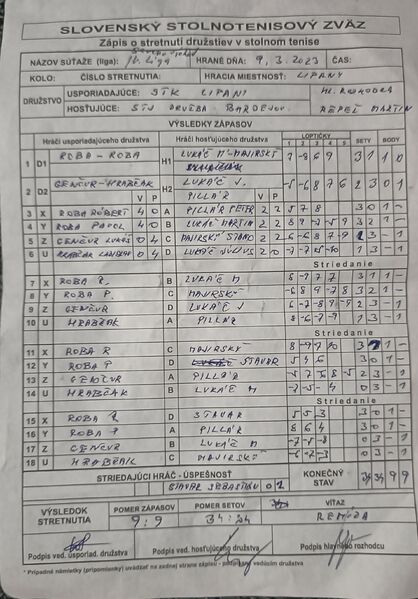 SLOVENSKÝ STOLNOTENISOVÝ ZVÄZ
Zápis o stretnutí družstiev v stolnom tenise
NÁZOV SÚŤAŽE (liga): IV. LIGA HRANÉ DŇA: 9.3.2023 ČAS:
KOLO: ČÍSLO STRETNUTIA: HRACIA MIESTNOSŤ: LIPANY
DRUŽSTVO USPORIADAJÚCE: STK LIPANI HL. ROZHODCA
HOSŤUJÚCE: STJ DRUŽBA BARDEJOV REPEL MARTIN
VÝSLEDKY ZÁPASOV
Hráči usporiadajúceho družstva Hráči hosťujúceho družstva LOPTIČKY SETY BODY
1 2 3 4 5
1 D1 ROBA - ROBA H1 LUKÁČ M - MAJIRSKÝ 7 -8 6 9 3 1 1 0
2 D2 GENČUR - HRABČAK H2 LUKÁČ J. PILLÁR -5 -6 8 7 6 2 3 0 1
V P V P
3 X ROBA RÓBERT 4 0 A PILLÁR PETER 2 2 5 7 8 3 0 1 -
4 Y ROBA PAVOL 4 0 B LUKÁČ MARTIN 2 2 3 2 1 -
5 Z GENČUR LUKÁŠ 0 4 C MAJIRSKÝ 2 2 -6 -6 8 -7 -9 3 - 1
6 U HRABČAK 0 4 D LUKÁČ JÚLIUS 2 0 - 1
Striedanie
7 X ROBA R. B LUKÁČ M 3 1 1 -
8 Y ROBA P. C MAJIRSKÝ -6 8 9 -7 8 3 2 1 -
9 Z GENČUR D LUKÁČ J 6 -7 -8 9 -7 2 3 - 1
10 U HRABČAK A PILLÁR 8 -6 -7 -9 1 3 - 1
Striedanie
11 X ROBA R C MAJIRSKÝ 3 1 -
12 Y ROBA P D STAVAR 5 4 6 3 0 1 -
13 Z GENČUR A PILLÁR 2 3 - 1
14 U HRABČAK B LUKÁČ M -7 -5 -4 0 3 - 1
Striedanie
15 X ROBA R D STAVAR 5 5 3 3 0 1 -
16 Y ROBA P A PILLÁR 8 6 4 3 0 1 -
17 Z GENČUR B LUKÁČ M -7 -5 -8 0 3 - 1
18 U HRABČAK C MAJIRSKÝ -6 -7 -3 0 3 - 1
STRIEDAJÚCI HRÁČ - ÚSPEŠNOSŤ KONEČNÝ STAV 34 34 9 9
STAVAR SEBASTIÁN 0 2
VÝSLEDOK STRETNUTIA POMER ZÁPASOV POMER SETOV VÍŤAZ
9 : 9 34 : 34 REMÍZA
Podpis ved. usporiad. družstva Podpis ved. hosťujúceho družstva Podpis hlavného rozhodcu
* Prípadné námietky (pripomienky) uvádzať na zadnej strane zápisu - podpísaný vedúcim družstva